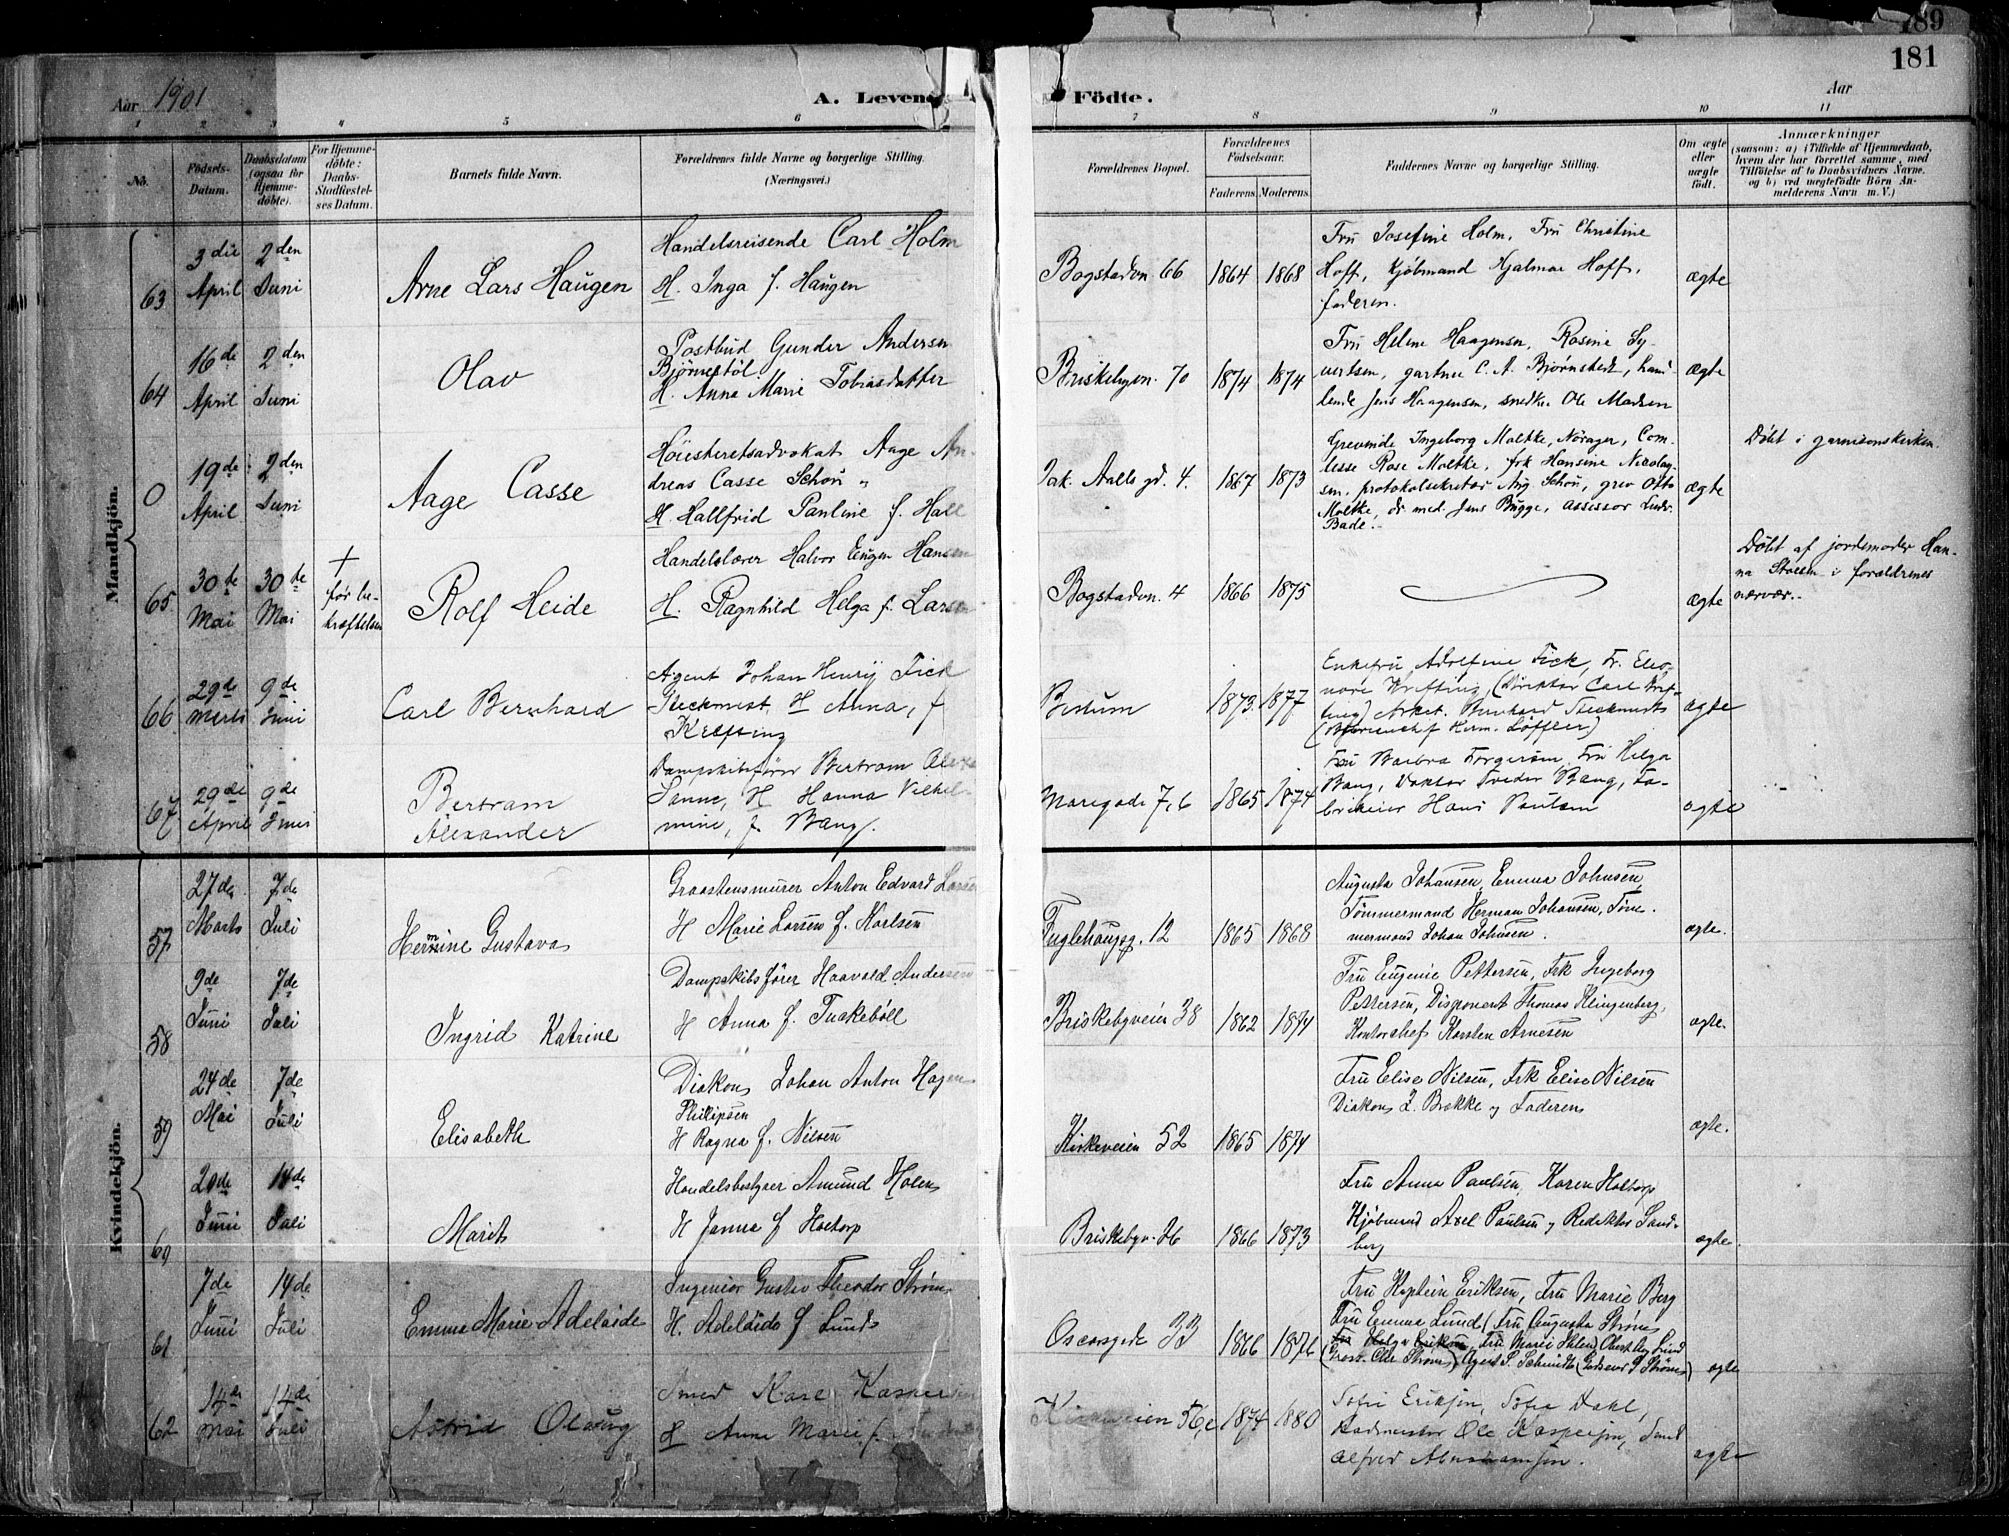 189
181
Aar 1901
A. Levende
Födte.
Aar
1 2 3 4 5 6 7 8 9 10 11
No.
Födsels-Datum.
Daabsdatum (ogsaa for Hjemme-döbte).
For Hjemme-döbte: Daabs-Stadfæstel-ses Datum.
Barnets fulde Navn.
Forældrenes fulde Navne og borgerlige Stilling.
(Næringsvei.)
Forældrenes Bopæl.
Forældrenes Födselsaar.
Faderens. Moderens.
Faddernes Navne og borgerlige Stilling.
Om ægte eller uægte födt.
Anmærkninger
(saasom: a) i Tilfælde af Hjemmedaab,
hvem der har forrettet samme, med
Tilföielse af to Daabsvidners Navne,
og b) ved uægtefödte Börn An-
melderens Navn m. V.)
Mandkjön.
63
3die April
2den Juni
Arne Lars Haugen
Handelsreisende Carl Holm
H. Inga f. Haugen
Bogstadvn. 66
1864 1868
Fru Josefine Holm, Fru Christine
Hoff, Kjöbmand Hjalmar Hoff,
faderen.
ægte
64
16de April
2den Juni
Olav
Postbud Gunder Andersen
Björnestöl
H. Anna Marie Tobiasdatter
Briskebyvn. 70
1874 1874
Fru Helene Haagensen, Rosine Sy-
vertsen, gartner C. A. Bjørnstedt, hand-
lende Jens Haagensen, snedk. Ole Madsen
ægte
0
19de April
2den Juni
Aage Casse
Höiesteretsadvokat Aage An-
dreas Casse Schou
H. Hallfrid Pauline f. Hall
Jak. Aalls gd. 4.
1867 1873
Grevinde Ingeborg Moltke, Nörager, Com-
tesse Rose Moltke, frk Hansine Nicolay-
sen, protokolsekretær Aug Schou, grev Otto
Moltke, dr med. Jens Bugge, assessor
Bade.
ægte
Döbt i garnisonskirken.
65
30te Mai
30te Mai
+
før be-
kræftelsen
Rolf Heide
Handelslærer Halvor Eugen Hansen
H. Ragnhild Helga f. Larsen
Bogstadvn. 4
1866 1875
ægte
Döbt af jordemoder Han-
na i forældrenes
nærvær.
66
29de Marts
9de Juni
Carl Bernhard
Agent Johan Henrij Fick
Steckmest. H Anna, f
Krefting
Bestum
1873. 1877
Enkefru Adolfine Fick, Fr. Eleo-
nore Krefting, (Direktør Carl Kref-
ting) Arkit. Bernhard Steckmest
Herm. Løffler)
ægte
67
29de April
9de Juni
Bertram
Alexander
Dampskibsfører Bertram Alex
Sanne, H Hanna Vilhel-
mine, f. Bang.
Maregade 7, 6
1865 1874
Fru Barbra Torgersen, Fru Helga
Bang, Doktor Bang, Fa-
brikeier Hans Paulsen
ægte
Kvindekjön.
57
27de Marts
7de Juli
Hermine Gustava
Graastensmurer Anton Edvard Larsen
H Marie Larsen f. Karlsen
Fuglehaugg. 12
1865 1868
Augusta Johansen, Emma Johnsen,
Tömmermand Herman Johansen, Töm-
mermand Johan Johnsen.
ægte.
58
9de Juni
7de Juli
Ingrid Katrine
Dampskibsfører Haavald Andersen
H Anna f.
Briskebyveien 38
1862 1874
Fru Eugenie Pettersen, Frk Ingeborg
Pettersen, Disponent Thomas Klingenberg,
Kontorchef Karsten Arnesen
ægte.
59
24de Mai
7de Juli
Elisabeth
Diakon Johan Anton Hagen
Phillipsen
H Ragna f. Nilsen
Kirkeveien 52
1865 1874
Fru Elise Nilsen, Frk Elise Nilsen
Diakon J. Brække og Faderen
ægte.
60
20de Juni
14de Juli
Marit
Handelsbestyrer Amund Holen
H Janna f Holtorp
Briskebyv. 26
1866 1873
Fru Anna Paulsen, Karen Holtorp
Kjøbmand Axel Paulsen og Redaktør Sand-
berg
ægte.
61
7de Juni
14de Juli
Emma Marie Adelaide
Ingeniør Gustav Theodor Strøm
H. Adelaide f Lund
Oscarsgade 33
1866 1876
Fru Kaptein Eriksen, Fru Marie Berg
Fru Emma Lund (Fru Augusta Strøm
Fru Helga Eriksen, Fru Marie Ihlen) Oberst Aug Lund
Ole Strøm) Agent P. Schmidt (Godseier P Strøm)
ægte
62
14de Mai
14de Juli
Astrid Olaug
Smed Karl Kaspersen
H Anna Marie f.
Kirkeveien 56,c
1874 1880
Sofie Eriksen, Sofie Dahl,
Ole Kaspersen, Smed
Alfred Abrahamsen.
ægte